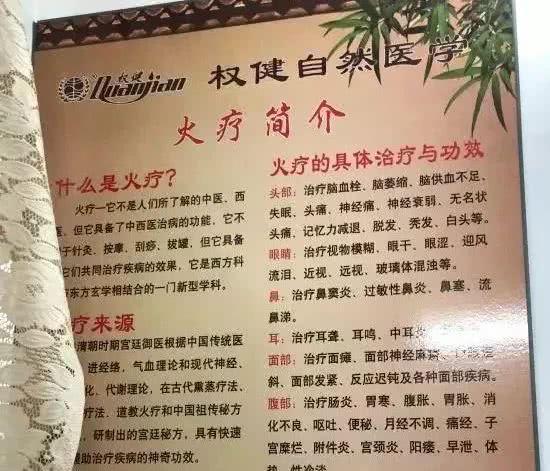 权健
Quanjian
权健自然医学
火疗简介
什么是火疗？
火疗—它不是人们所了解的中医、西
但它具备了中西医治病的功能，它不
于针灸、按摩、刮痧、拔罐，但它具备
它们共同治疗疾病的效果，它是西方科
东方玄学相结合的一门新型学科。
疗来源
清朝时期宫廷御医根据中国传统医
进经络，气血理论和现代神经、
化、代谢理论，在古代熏蒸疗法、
疗法、道教火疗和中国祖传秘方
研制出的宫廷秘方，具有快速
助治疗疾病的神奇功效。
火疗的具体治疗与功效
头部：治疗脑血栓、脑萎缩、脑供血不足、
失眠、头痛、神经痛、神经衰弱、无名状
头痛、记忆力减退、脱发、秃发、白头等。
眼睛：治疗视物模糊、眼干、眼涩、迎风
流泪、近视、远视、玻璃体混浊等。
鼻：治疗鼻窦炎、过敏性鼻炎、鼻塞、流
鼻涕。
耳：治疗耳聋、耳鸣、中耳
面部：治疗面瘫、面部神经麻痹、
斜、面部发紧、反应迟钝及各种面部疾病。
腹部：治疗肠炎、胃寒、腹胀、胃胀、消
化不良、呕吐、便秘、月经不调、痛经、子
宫糜烂、附件炎、宫颈炎、阳痿、早泄、体
性冷淡